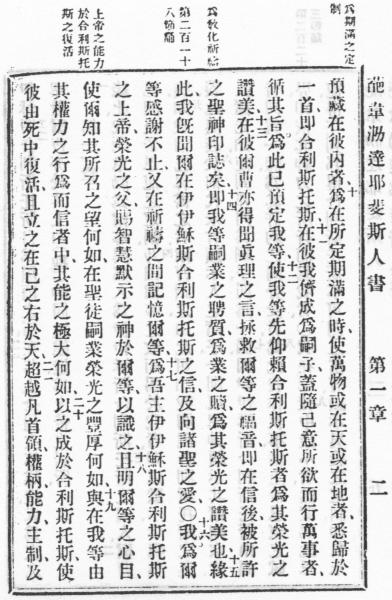 葩韋泐達耶斐斯人書 第二章 二
爲期滿之定
制
十
預藏在彼內者爲在所定期滿之時使萬物或在天或在地者悉歸於
十一
一首即合利斯托斯在彼我儕成爲嗣子蓋隨己意所欲而行萬事者
十二
循其旨爲此已預定我等使我等先仰賴合利斯托斯者爲其榮光之
十三
讚美在彼爾曹亦得聞眞理之言拯救爾等之福音即在信後被所許
十四
之聖神印誌矣即我等嗣業之聘質爲業之贖爲其榮光之讚美也緣
十五
爲敎化祈禱
第二百一十
八誦讀
此我旣聞爾在伊伊穌斯合利斯托斯之信及向諸聖之愛○我爲爾
十六
等感謝不止又在祈禱之間記憶爾等爲吾主伊伊穌斯合利斯托斯
十七
之上帝榮光之父賜智慧默示之神於爾等以識之且明爾等之心目
十八
使爾知其所召之望何如在聖徒嗣業榮光之豐厚何如與在我等由
十九
上帝之能力
於合利斯托
斯之復活
其權力之行爲而信者中其能之極大何如以之成於合利斯托斯使
二十
彼由死中復活且立之在己之右於天超越凡首領權柄能力主制及
二一